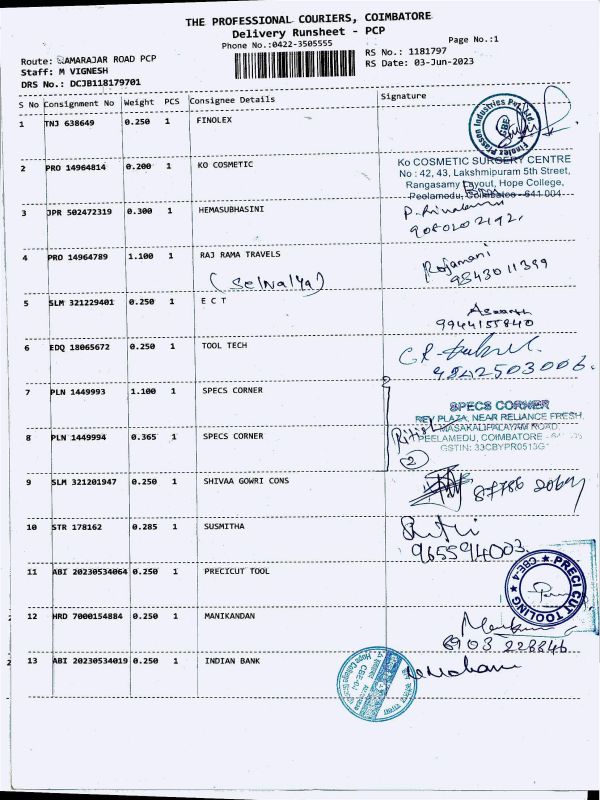 THE PROFESSIONAL COURIERS, COIMBATORE
Delivery Runsheet - PCP
Phone No.:0422-3505555
Page No.:1
Route: RAMARAJAR ROAD PCP
RS No.: 1181797
Staff: M VIGNESH
RS Date: 03-Jun-2023
DRS No.: DCJB118179701
S No Consignment No Weight PCS Consignee Details Signature
1 TNJ 638649 0.250 1 FINOLEX
2 PRO 14964814 0.200 1 KO COSMETIC
Ko COSMETIC SURGERY CENTRE
No : 42, 43, Lakshmipuram 5th Street,
Rangasamy Layout, Hope College,
Peelamedu, Coimbatore - 641 004.
3 JPR 502472319 0.300 1 HEMASUBHASINI
4 PRO 14964789 1.100 1 RAJ RAMA TRAVELS
Rajamani
9843011399
5 SLM 321229401 0.250 1 E C T
9944155840
6 EDQ 18065672 0.250 1 TOOL TECH
9842503006.
7 PLN 1449993 1.100 1 SPECS CORNER
SPECS CORNER
REY PLAZA, NEAR RELIANCE FRESH,
MASAKALIPALAYAM ROAD
PEELAMEDU, COIMBATORE -
8 PLN 1449994 0.365 1 SPECS CORNER
2
9 SLM 321201947 0.250 1 SHIVAA GOWRI CONS
10 STR 178162 0.285 1 SUSMITHA
965594003
11 ABI 20230534064 0.250 1 PRECICUT TOOL
PRECI CUT TOOLING
CBE-4
12 HRD 7000154884 0.250 1 MANIKANDAN
8903 228846
13 ABI 20230534019 0.250 1 INDIAN BANK